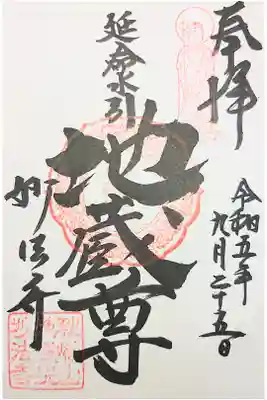 奉拝
令和五年九月二十五日
延命水引
地蔵尊
妙法寺